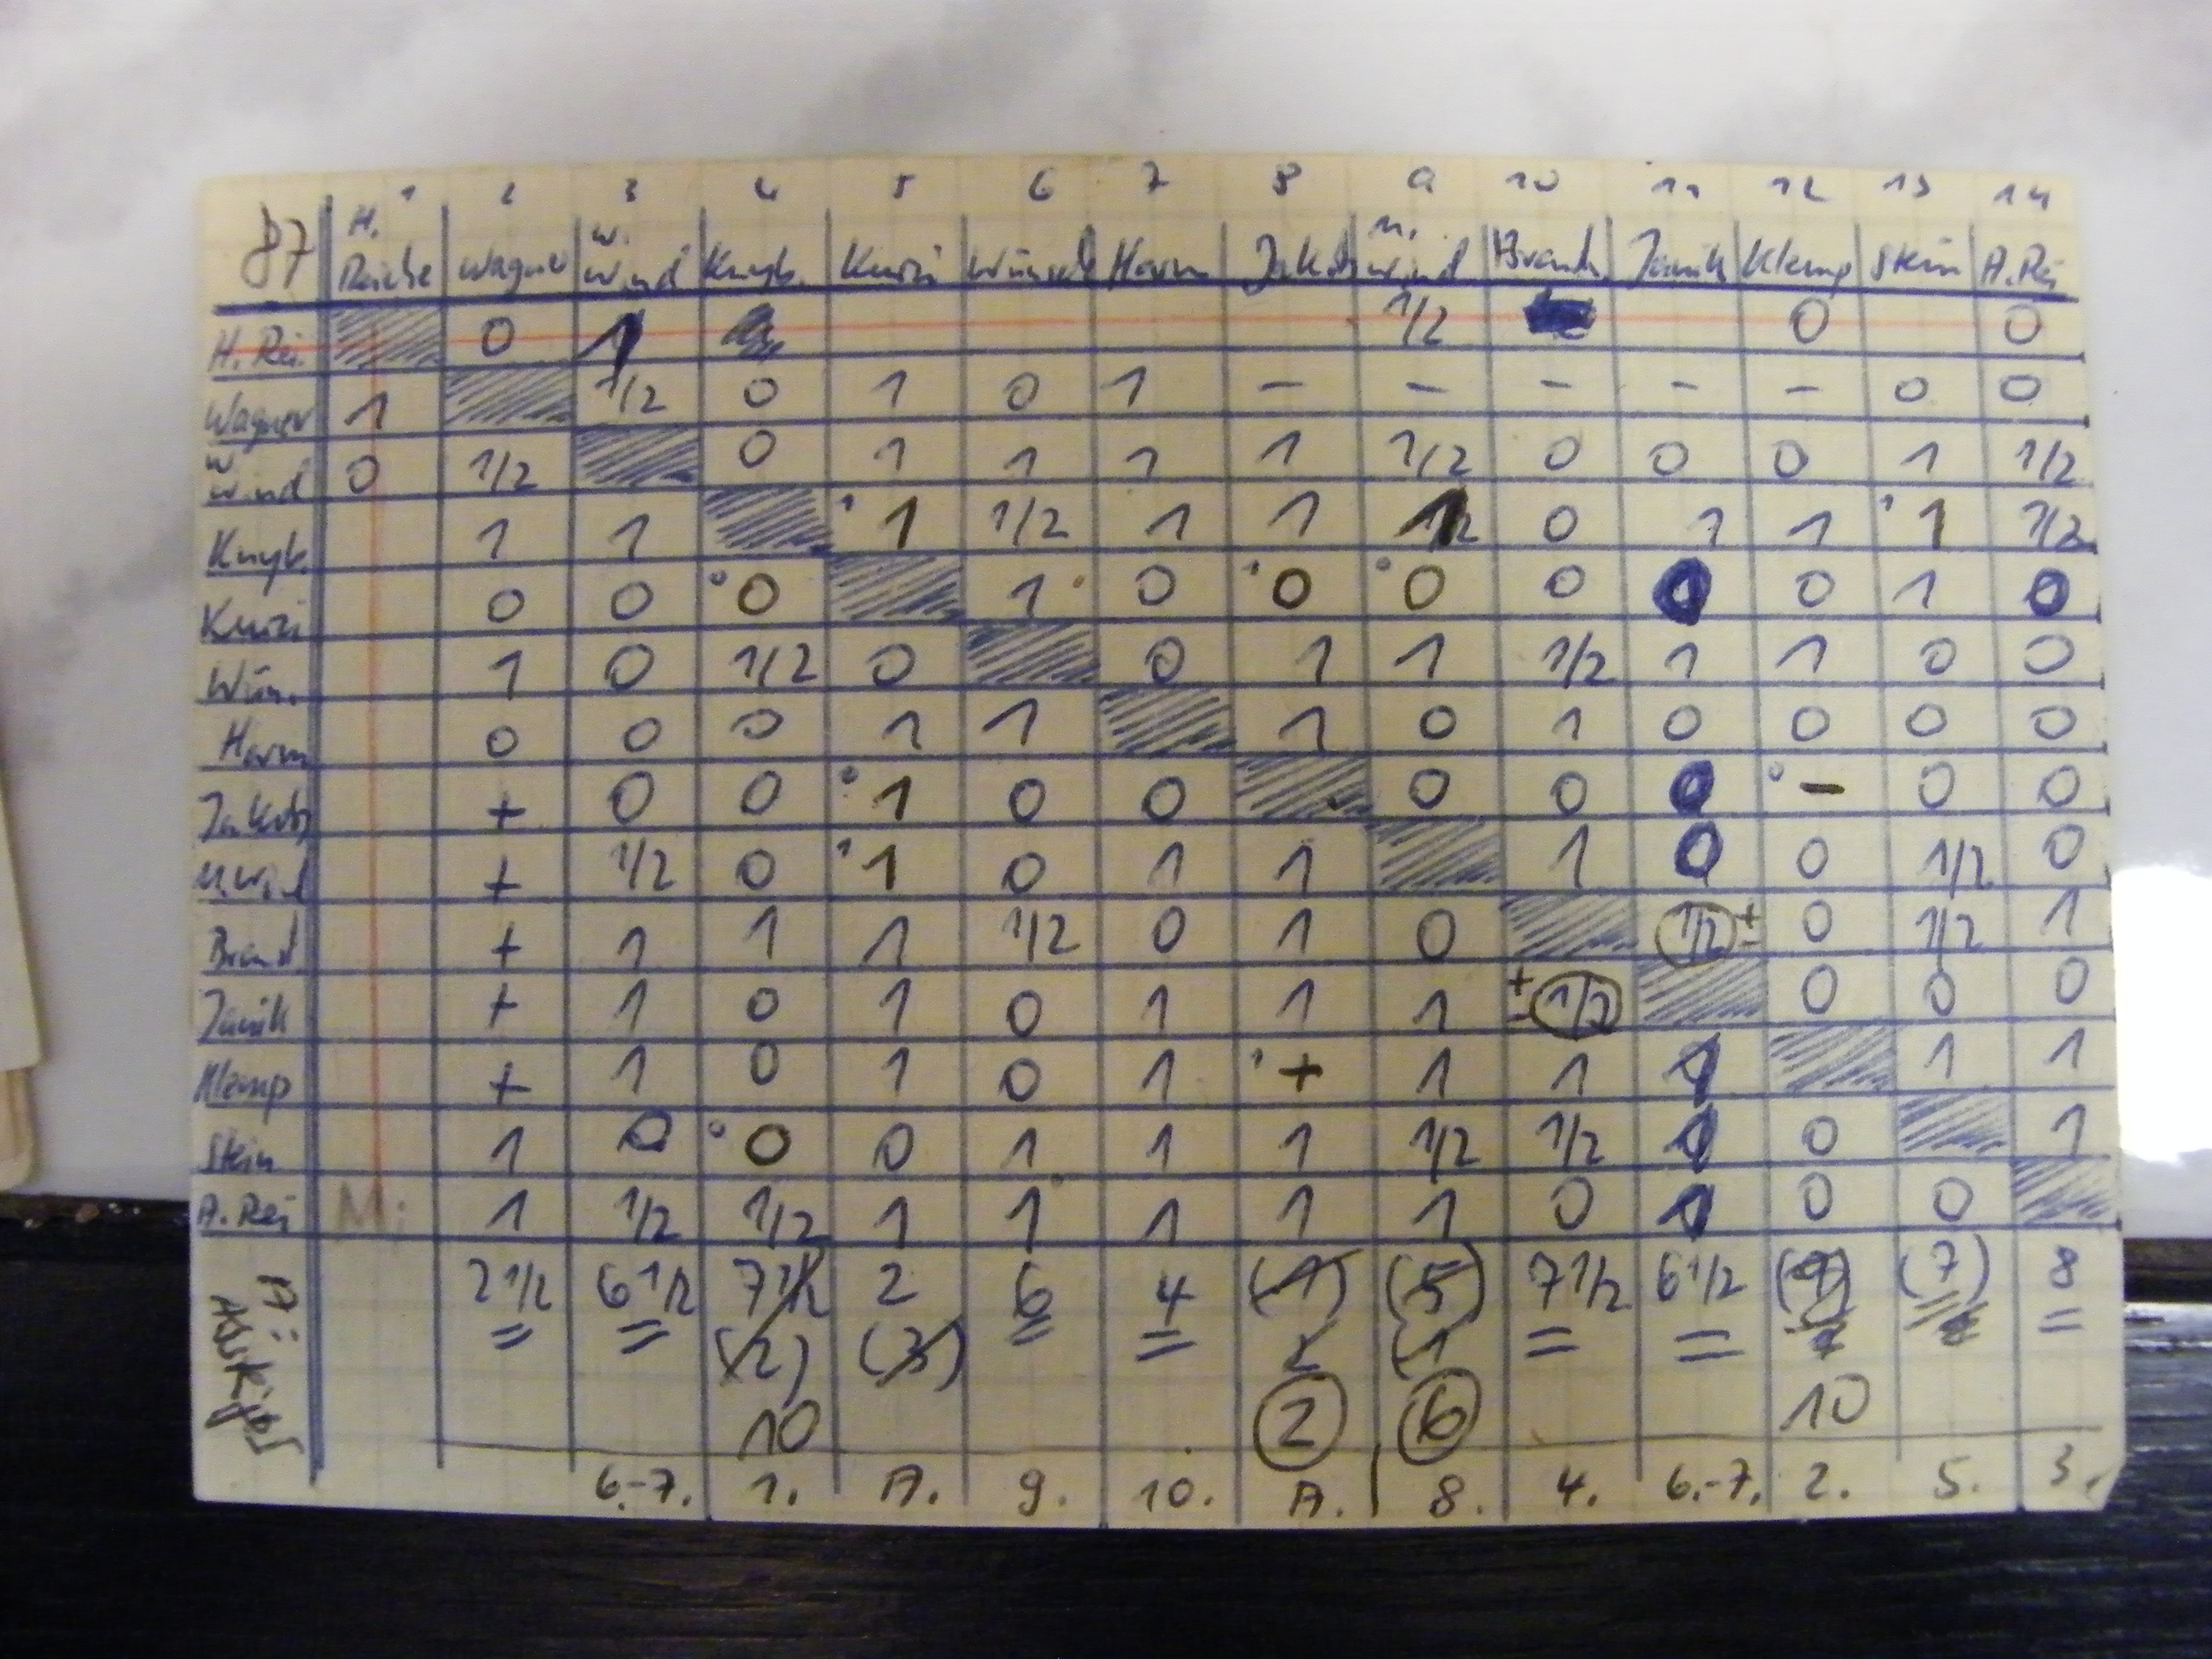 1 2 3 4 5 6 7 8 9 10 11 12 13 14
87 H. Reiche Wagner W. Wind Knyb. Kurzi Wünsch Harm Jakob M. Wind Brand Janik Klemp Stein A. Rei
H. Rei. 0 1 1/2 0 0
Wagner 1 1/2 0 1 0 1 - - - - - 0 0
W. Wind 0 1/2 0 1 1 1 1 1/2 0 0 0 1 1/2
Knyb. 1 1 1 1/2 1 1 1/2 0 1 1 1 1/2
Kurzi 0 0 0 1 0 0 0 0 0 0 1 0
Wün. 1 0 1/2 0 0 1 1 1/2 1 1 0 0
Harm 0 0 0 1 1 1 0 1 0 0 0 0
Jakob + 0 0 1 0 0 0 0 0 - 0 0
M. Wind + 1/2 0 1 0 1 1 1 0 0 1/2 0
Brand + 1 1 1 1/2 0 1 0 1/2 ± 0 1/2 1
Janik + 1 0 1 0 1 1 1 ± 1/2 0 0 0
Klemp + 1 0 1 0 1 + 1 1 1 1 1
Stein 1 0 0 0 1 1 1 1/2 1/2 1 0 1
A. Rei Mi 1 1/2 1/2 1 1 1 1 1 0 1 0 0
A: 2 1/2 6 1/2 7 1/2 2 6 4 (1) (5) 7 1/2 6 1/2 (9) (7) 8
(2) (3) 2 (1
10 2 6 10
6.-7. 1. A. 9. 10. A. 8. 4. 6.-7. 2. 5. 3.